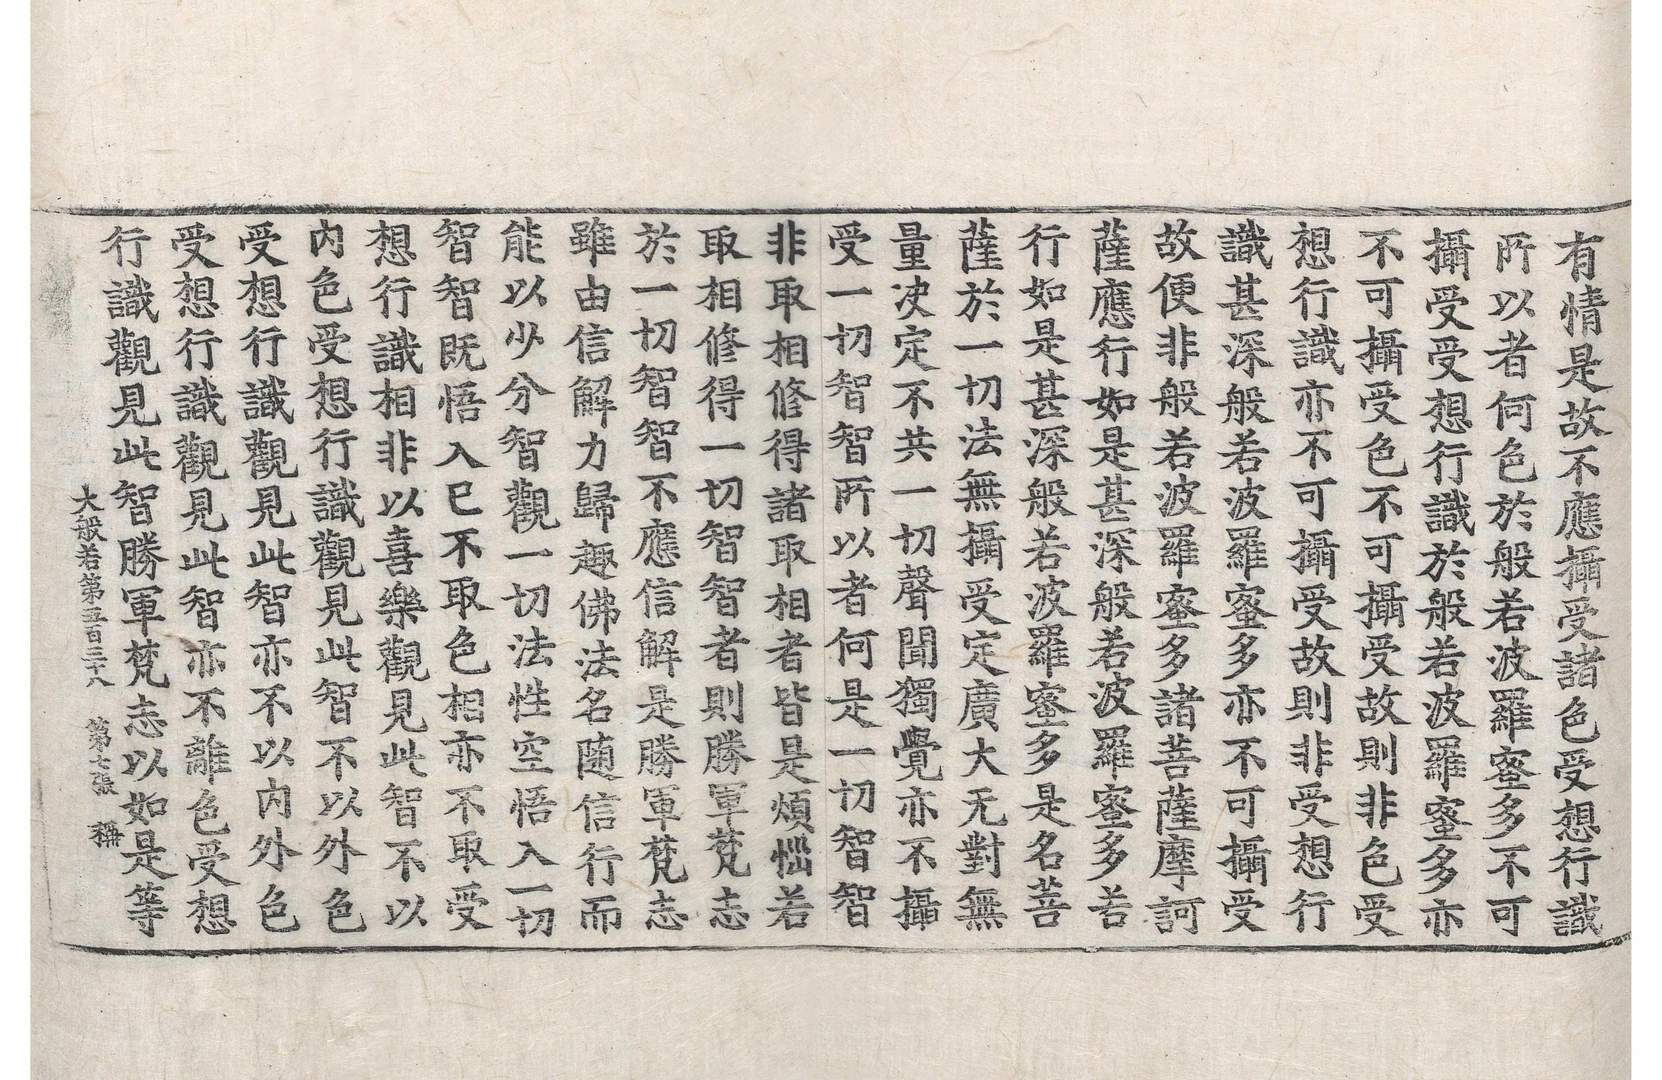 有情是故不應攝受諸色受想行識
所以者何色於般若波羅蜜多不可
攝受受想行識於般若波羅蜜多亦
不可攝受色不可攝受故則非色受
想行識亦不可攝受故則非受想行
識甚深般若波羅蜜多亦不可攝受
故便非般若波羅蜜多諸菩薩摩訶
薩應行如是甚深般若波羅蜜多若
行如是甚深般若波羅蜜多是名菩
薩於一切法無攝受定廣大无對無
量决定不共一切聲聞獨覺亦不攝
受一切智智所以者何是一切智智
非取相修得諸取相者皆是煩惱若
取相修得一切智智者則勝軍梵志
於一切智智不應信解是勝軍梵志
雖由信解力歸趣佛法名随信行而
能以少分智觀一切法性空悟入一切
智智既悟入已不取色相亦不取受
想行識相非以喜樂觀見此智不以
內色受想行識觀見此智不以外色
受想行識觀見此智亦不以內外色
受想行識觀見此智亦不離色受想
行識觀見此智勝軍梵志以如是等
大般若第五百三十八 第七張 稱